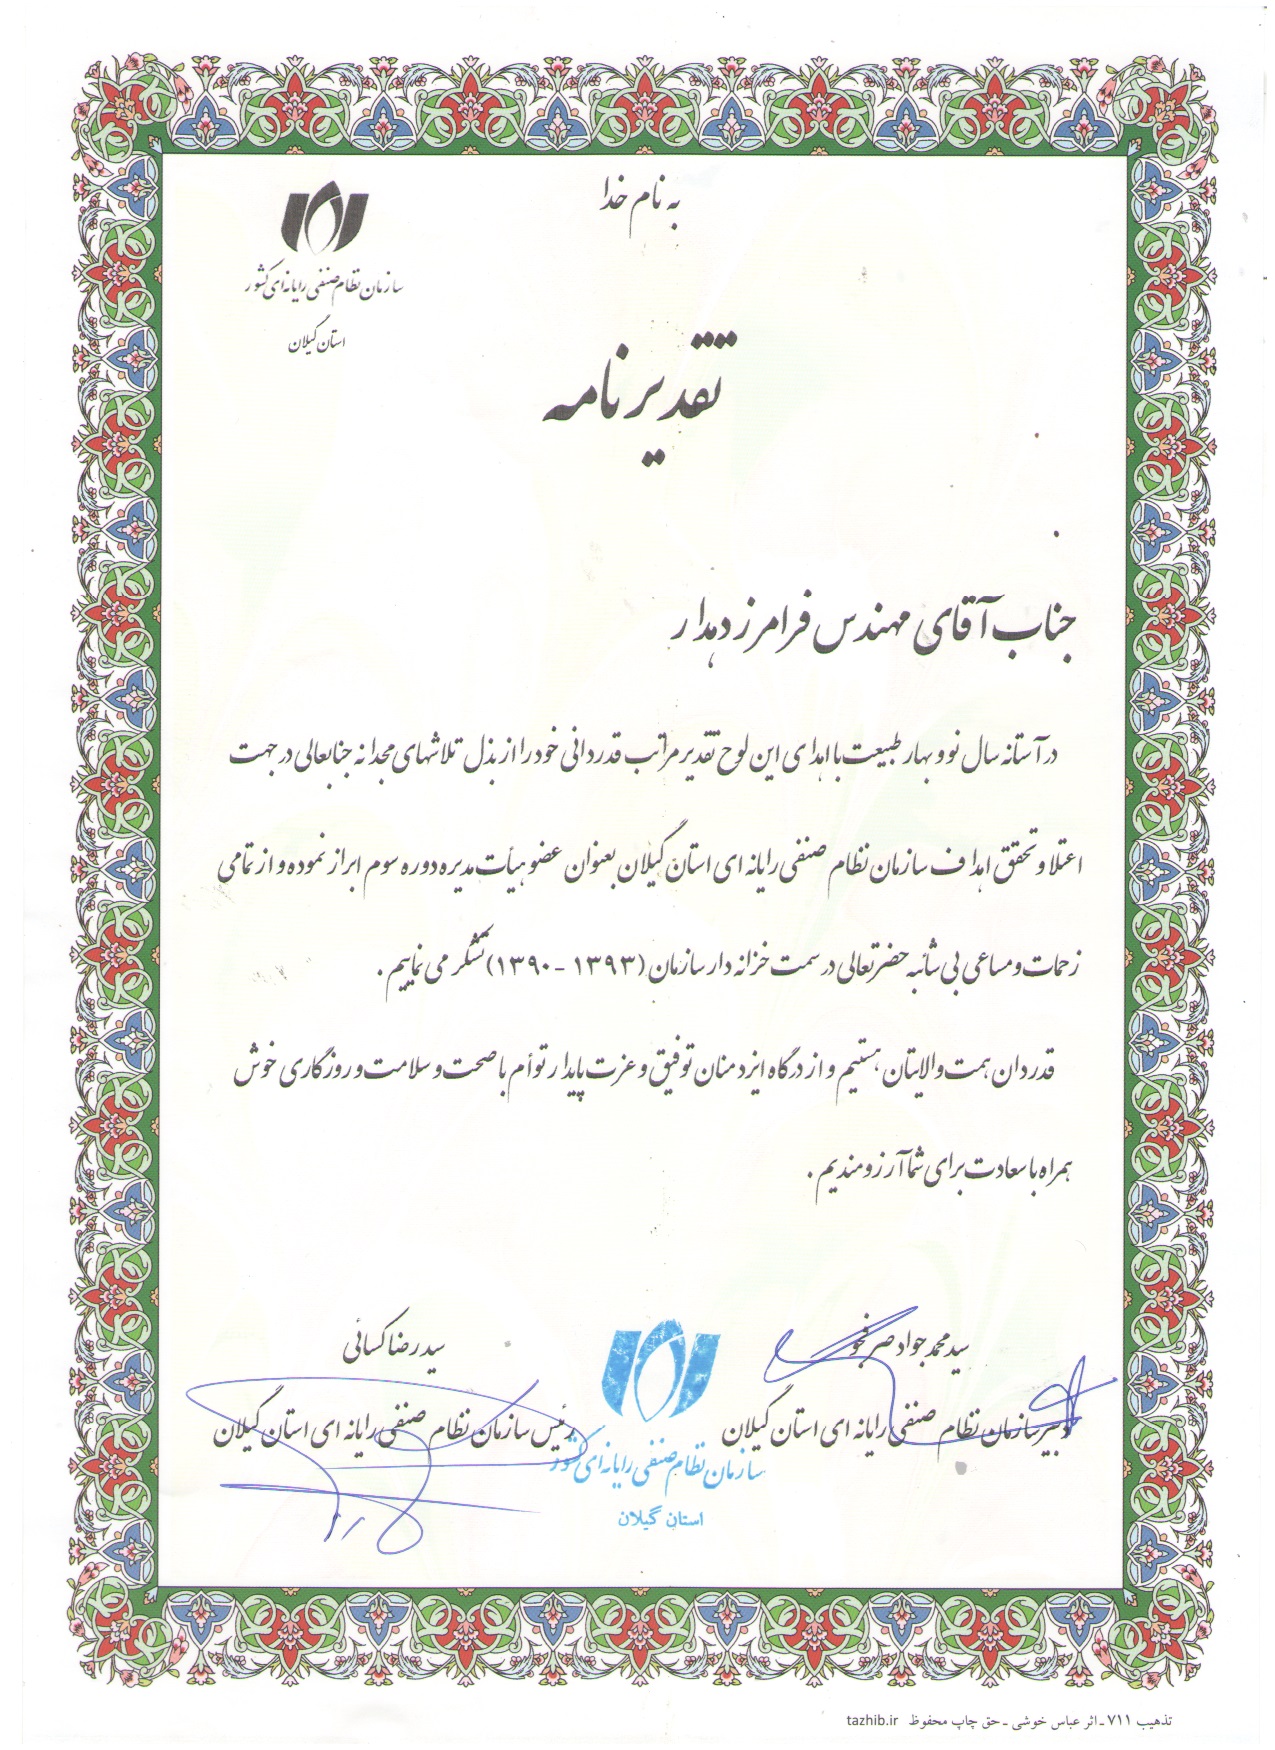 به نام خدا
سازمان نظام صنفی رایانه ای کشور
استان گیلان
تقدیرنامه
جناب آقای مهندس فرامرز دهدار
در آستانه سال نو و بهار طبیعت با اهدای این لوح تقدیر مراتب قدردانی خود را از بذل تلاشهای مجدانه جنابعالی در جهت
اعتلا و تحقق اهداف سازمان نظام صنفی رایانه ای استان گیلان بعنوان عضو هیأت مدیره دوره سوم ابراز نموده و از تمامی
زحمات و مساعی بی شائبه حضرتعالی در سمت خزانه دار سازمان (۱۳۹۳ - ۱۳۹۰) تشکر می نماییم .
قدردان همت والایتان هستیم و از درگاه ایزد منان توفیق و عزت پایدار توأم با صحت و سلامت و روزگاری خوش
همراه با سعادت برای شما آرزومندیم .
سید محمد جواد صرفجو
دبیر سازمان نظام صنفی رایانه ای استان گیلان
سید رضا کسائی
رئیس سازمان نظام صنفی رایانه ای استان گیلان
سازمان نظام صنفی رایانه ای کشور
استان گیلان
تذهیب ۷۱۱ - اثر عباس خوشی - حق چاپ محفوظ tazhib.ir